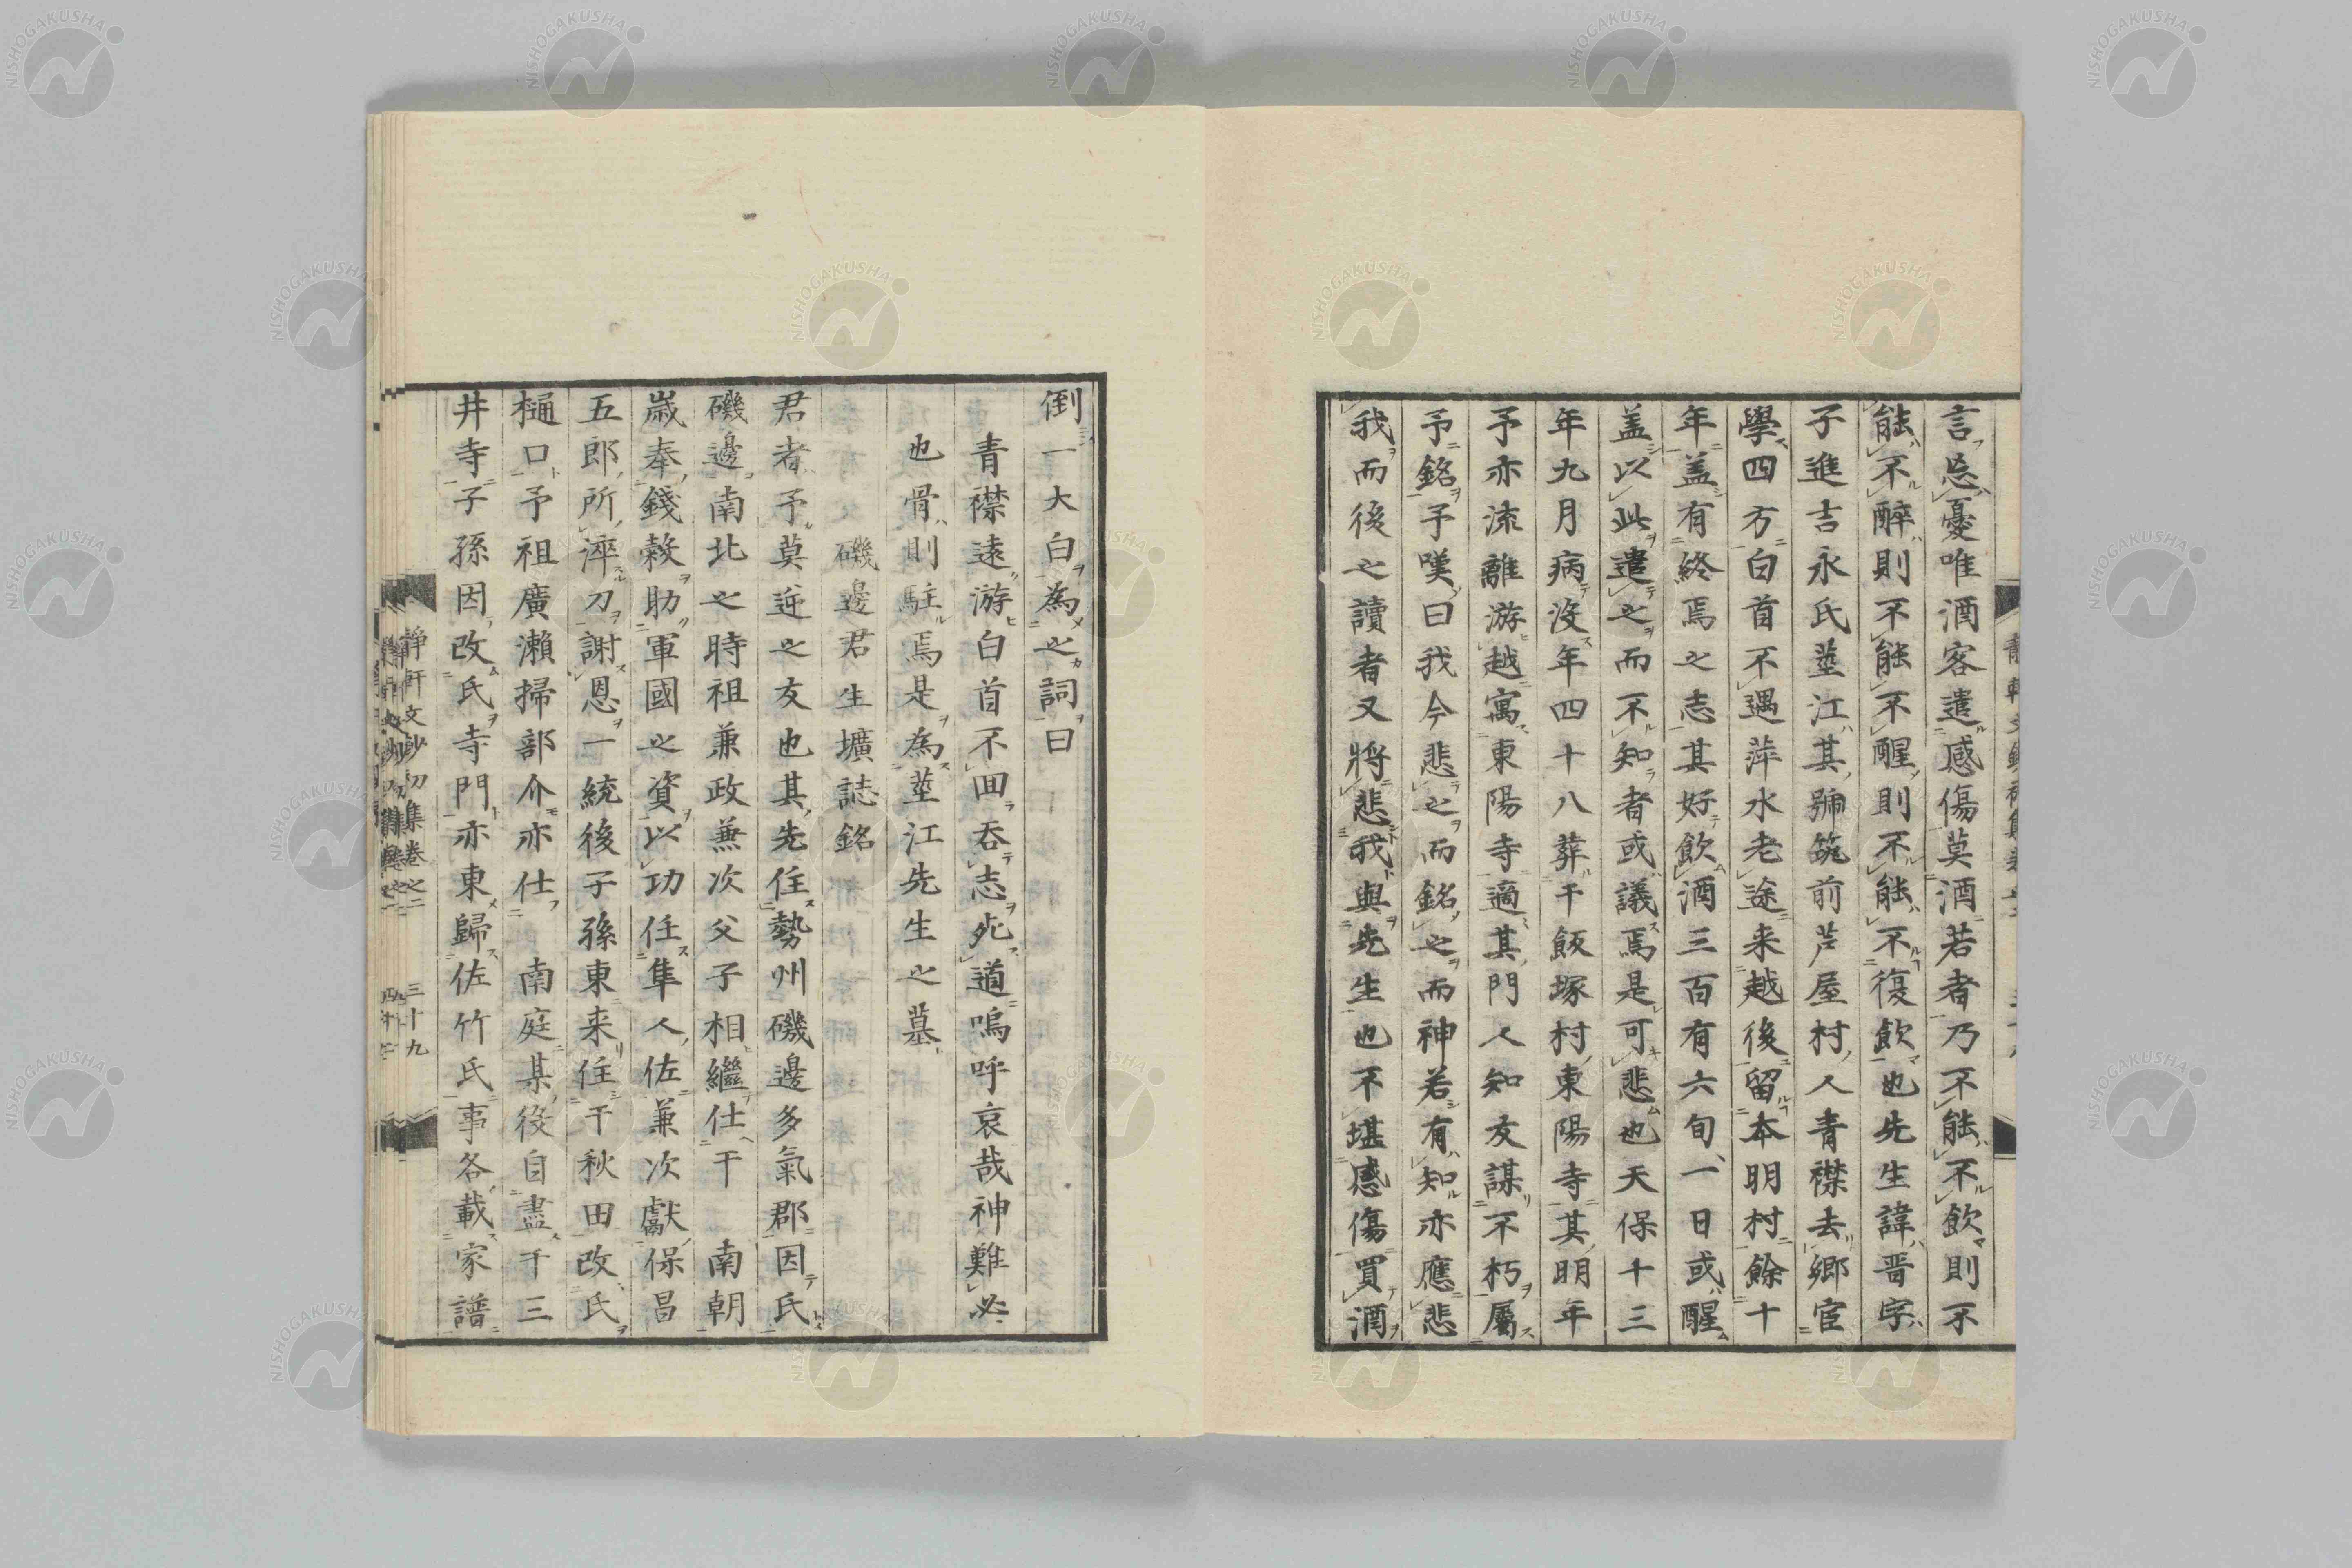 言忘憂唯酒客遣感傷莫酒若者乃不能不飲則不
能不醉則不能不醒則不能不復飲也先生諱晋字
子進吉永氏莖江其號筑前芦屋村人青襟去鄉宦
學四方白首不遇萍水老途来越後留本明村餘十
年盖有終焉之志其好飲酒三百有六旬一日或醒
盖以此遣之而不知者或議焉是可悲也天保十三
年九月病没年四十八葬于飯塚村東陽寺其明年
予亦流離游越寓東陽寺適其門人知友謀不朽屬
予銘予嘆曰我今悲之而銘之而神若有知亦應悲
我而後之讀者又將悲我與先生也不堪感傷買酒
倒一大白為之詞曰
青襟遠游白首不回吞志死道嗚呼哀哉神難必
也骨則駐焉是為莖江先生之墓
磯邊君生壙誌銘
君者予莫逆之友也其先住勢州磯邊多氣郡因氏
磯邊南北之時祖兼政兼次父子相繼仕于南朝
歲奉錢穀助軍國之資以功任隼人佐兼次獻保昌
五郎所淬刀謝恩一統後子孫東来住于秋田改氏
樋口予祖廣瀬掃部介亦仕南庭某役自盡于三
井寺子孫因改氏寺門亦東歸佐竹氏事各載家譜
静軒文鈔初集卷之二 三十九